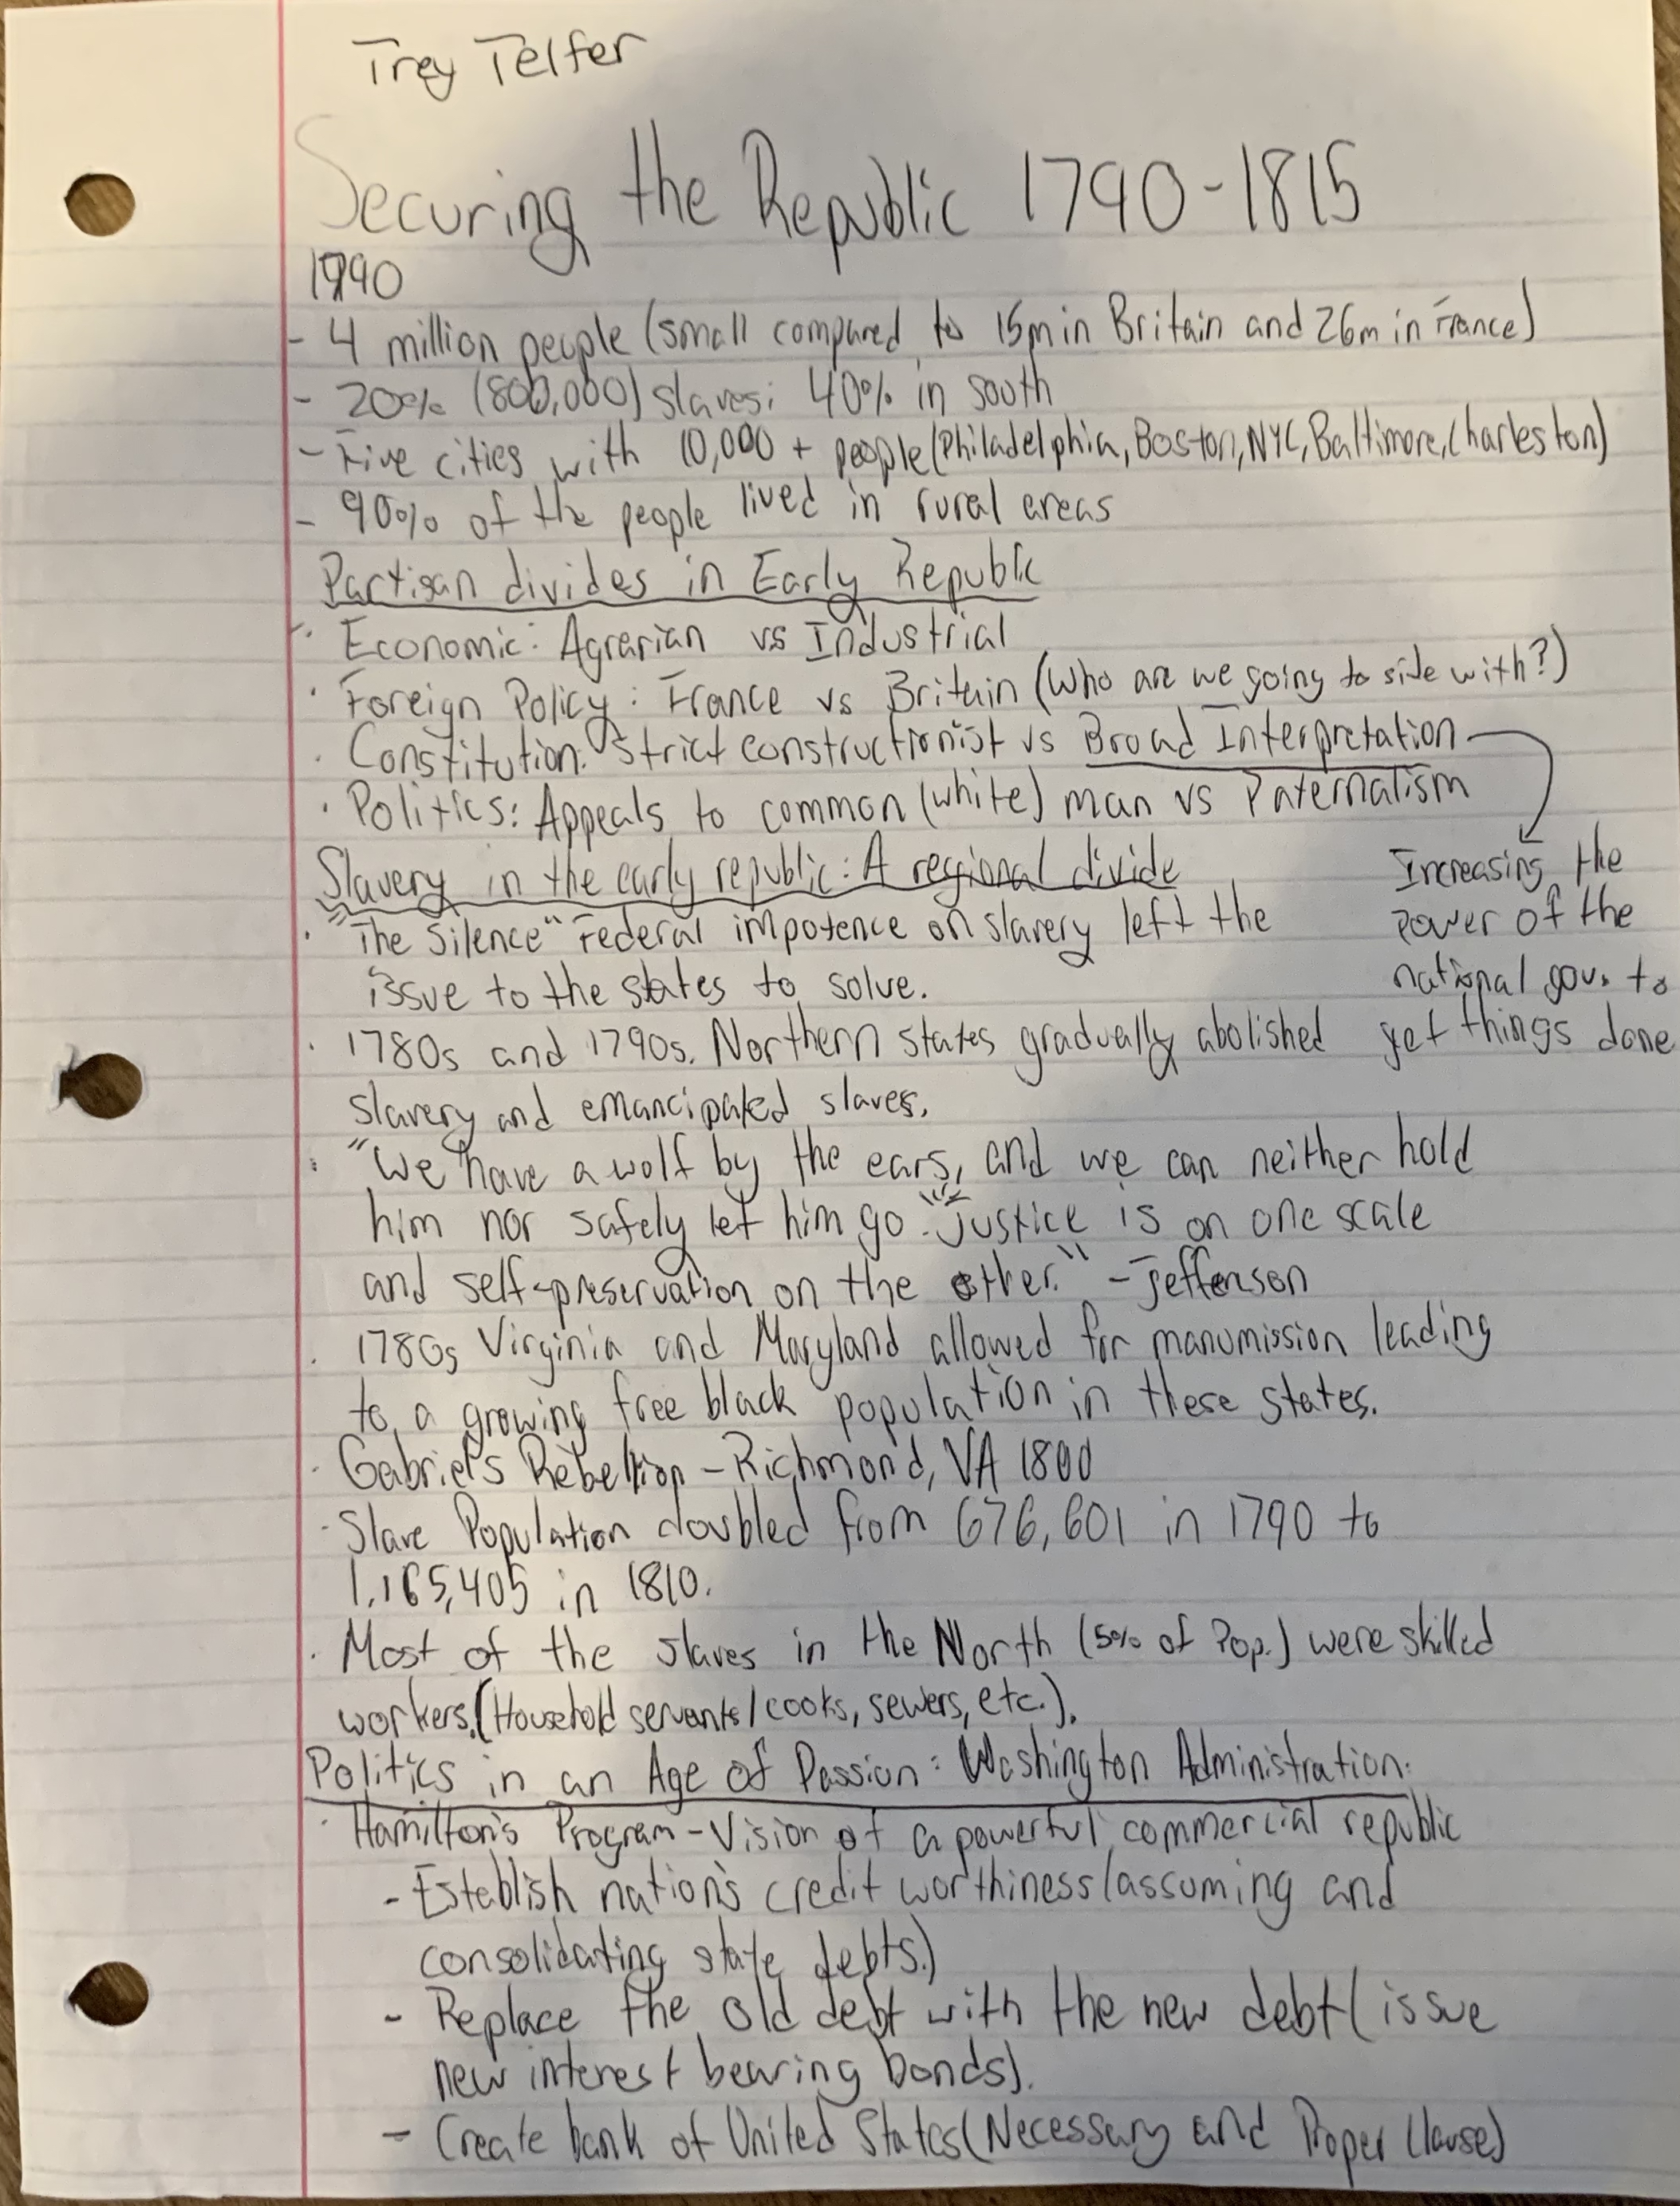 Trey Telfer
Securing the Republic 1790-1815
1790
- 4 million people (small compared to 15m in Britain and 26m in France)
- 20% (800,000) slaves; 40% in south
- Five cities with 10,000 + people (Philadelphia, Boston, NYC, Baltimore, Charleston)
- 90% of the people lived in rural areas
Partisan divides in Early Republic
· Economic: Agrarian vs Industrial
· Foreign Policy: France vs Britain (Who are we going to side with?)
· Constitution: Strict constructionist vs Broad Interpretation
· Politics: Appeals to common (white) man vs Paternalism
Slavery in the early republic: A regional divide
· "The Silence" Federal impotence on slavery left the
issue to the states to solve.
Increasing the
power of the
national gov. to
get things done
· 1780s and 1790s. Northern states gradually abolished
slavery and emancipated slaves.
· "We have a wolf by the ears, and we can neither hold
him nor safely let him go." "Justice is on one scale
and self-preservation on the other." - Jefferson
· 1780s Virginia and Maryland allowed for manumission leading
to a growing free black population in these states.
· Gabriel's Rebellion - Richmond, VA 1800
· Slave Population doubled from 676,601 in 1790 to
1,165,405 in 1810.
· Most of the slaves in the North (5% of Pop.) were skilled
workers. (Household servants/cooks, sewers, etc.).
Politics in an Age of Passion: Washington Administration:
· Hamilton's Program - Vision of a powerful commercial republic
- Establish nation's credit worthiness (assuming and
consolidating state debts.)
- Replace the old debt with the new debt (issue
new interest bearing bonds).
- Create bank of United States (Necessary and Proper Clause)